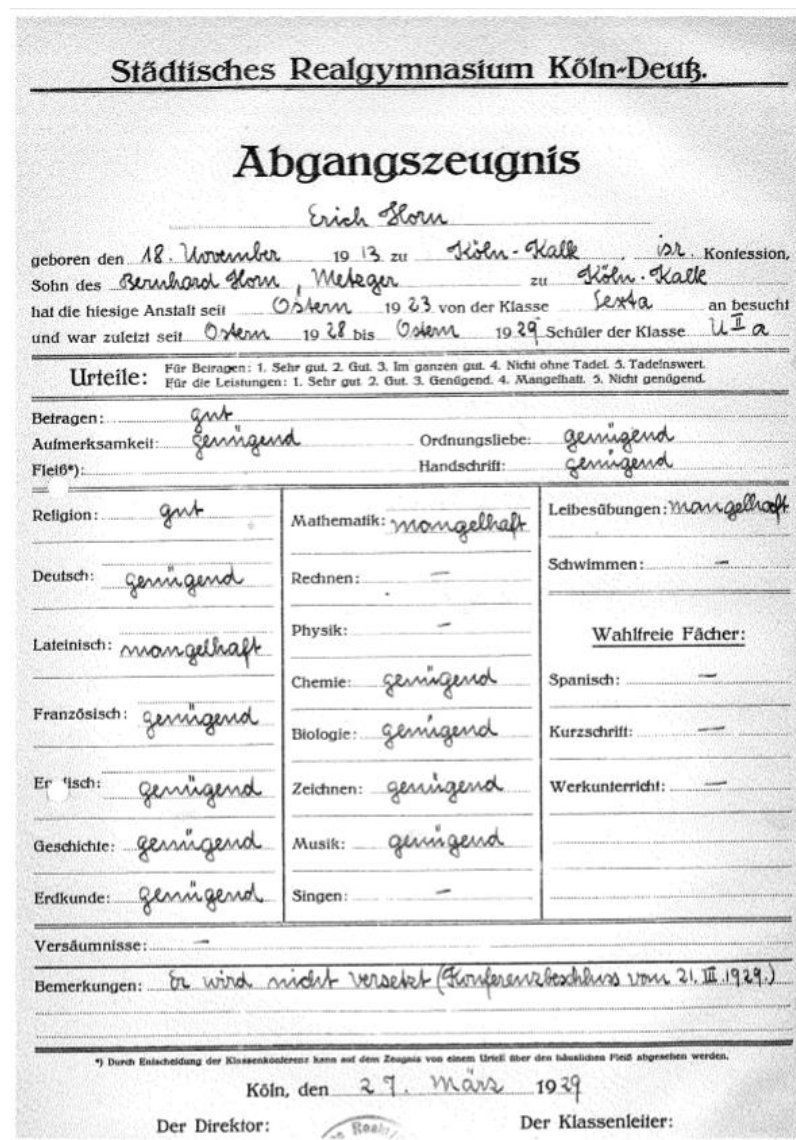 Städtisches Realgymnasium Köln-Deutz.
Abgangszeugnis
Erich Horn
geboren den 18. November 1913 zu Köln-Kalk, isr. Konfession,
Sohn des Bernhard Horn, Metzger zu Köln-Kalk
hat die hiesige Anstalt seit Ostern 1923 von der Klasse Sexta an besucht
und war zuletzt seit Ostern 1928 bis Ostern 1929 Schüler der Klasse U II a
Urteile: Für Betragen: 1. Sehr gut. 2. Gut. 3. Im ganzen gut. 4. Nicht ohne Tadel. 5. Tadelnswert.
Für die Leistungen: 1. Sehr gut. 2. Gut. 3. Genügend. 4. Mangelhaft. 5. Nicht genügend.
Betragen: gut
Aufmerksamkeit: genügend Ordnungsliebe: genügend
Fleiß*): Handschrift: genügend
Religion: gut
Deutsch: genügend
Lateinisch: mangelhaft
Französisch: genügend
Englisch: genügend
Geschichte: genügend
Erdkunde: genügend
Mathematik: mangelhaft
Rechnen: —
Physik: —
Chemie: genügend
Biologie: genügend
Zeichnen: genügend
Musik: genügend
Singen: —
Leibesübungen: mangelhaft
Schwimmen: —
Wahlfreie Fächer:
Spanisch: —
Kurzschrift: —
Werkunterricht: —
Versäumnisse: —
Bemerkungen: Er wird nicht versetzt (Konferenzbeschluss vom 21. III. 1929.)
*) Durch Entscheidung der Klassenkonferenz kann auf dem Zeugnis von einem Urteil über den häuslichen Fleiß abgesehen werden.
Köln, den 27. März 1929
Der Direktor: Der Klassenleiter: